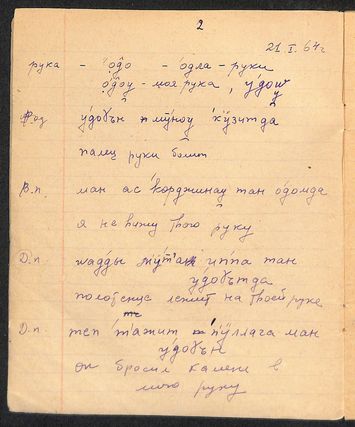 2
21 I. 64г
рука - о́до - одла - руки
о́доу - моя рука, у́дош
Род у́добын мӱноу кӱзитда
палец руки болит
В.п ман ас корджинау тан о́домда
я не вижу твою руку
Д.п иппа тан
у́добытда
полотенце лежит на твоей руке
Д.п теп тажит пӱллага ман
у́добын
он бросил камень в
мою руку